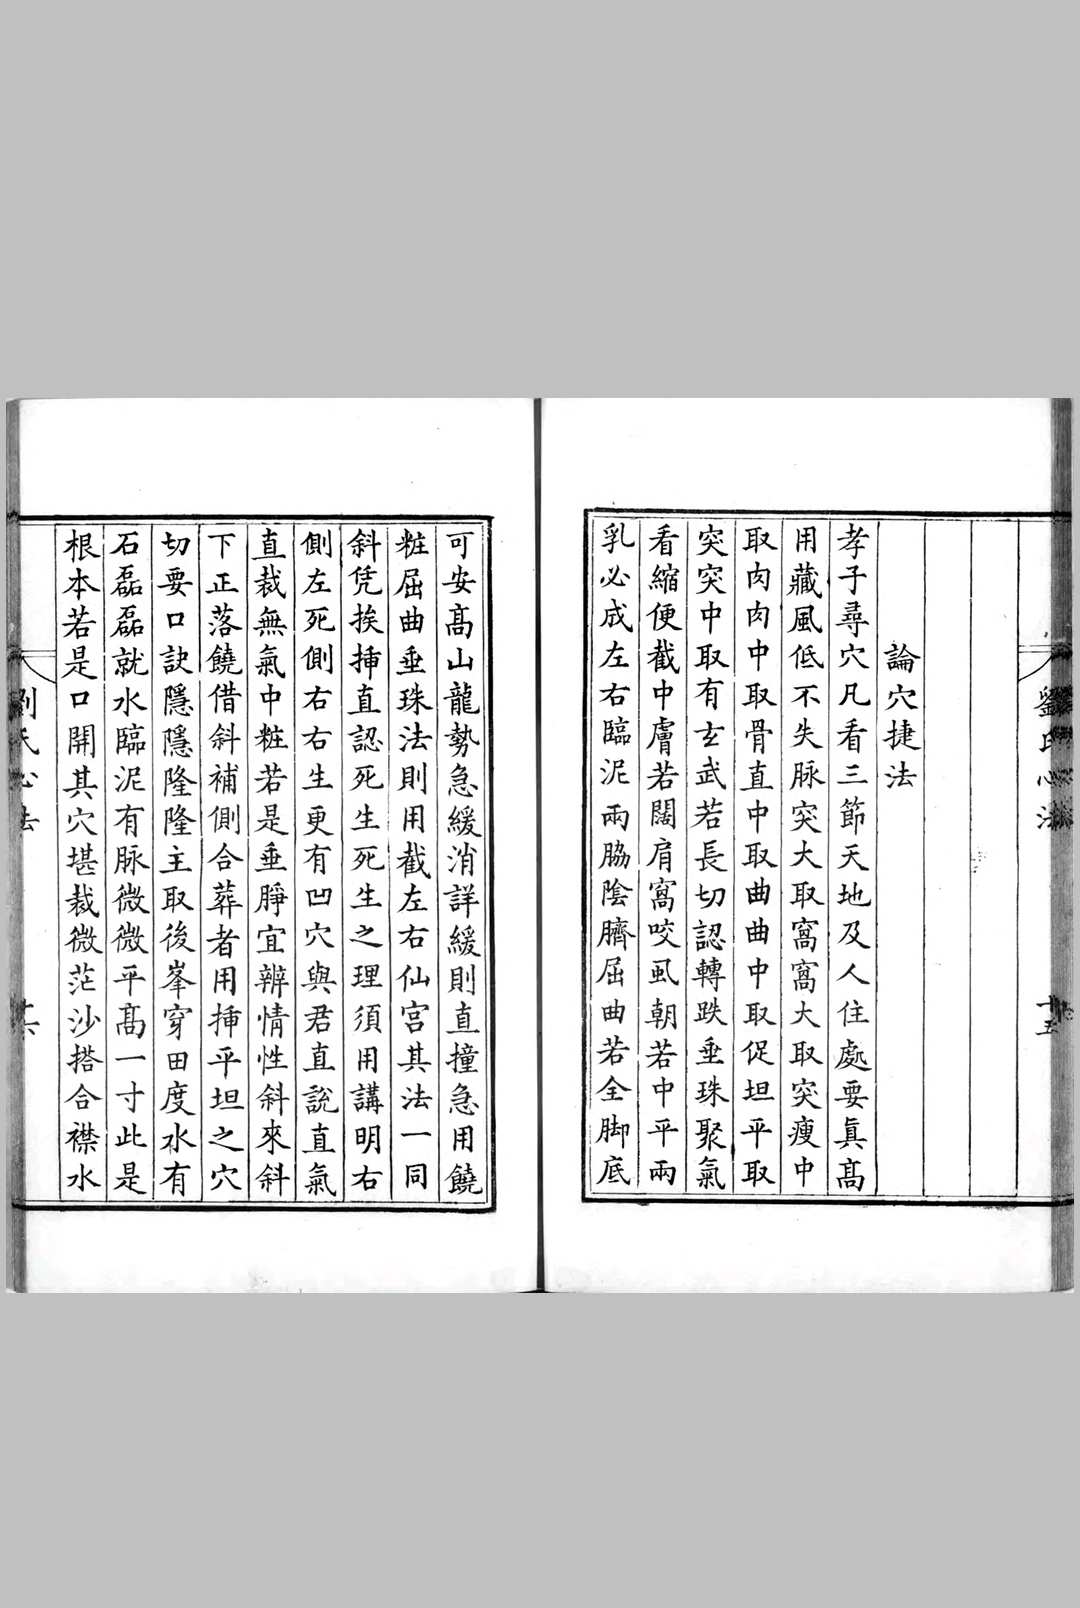 劉氏心法
十五
論穴捷法
孝子尋穴凡看三節天地及人住處要眞髙
用藏風低不失脉突大取窩窩大取突瘦中
取肉肉中取骨直中取曲曲中取促坦平取
突突中取有玄武若長切認轉跌垂珠聚氣
看縮便截中膚若闊肩窩咬虱朝若中平兩
乳必成左右臨泥兩脇陰臍屈曲若全脚底
可安髙山龍勢急緩消詳緩則直撞急用饒
粧屈曲垂珠法則用截左右仙宮其法一同
斜凭挨揷直認死生死生之理須用講明右
側左死側右右生更有凹穴與君直說直氣
直裁無氣中粧若是垂脝宜辨情性斜來斜
下正落饒借斜補側合葬者用揷平坦之穴
切要口訣隱隱隆隆主取後峯穿田度水有
石磊磊就水臨泥有脉微微平髙一寸此是
根本若是口開其穴堪裁微茫沙搭合襟水
劉氏心法